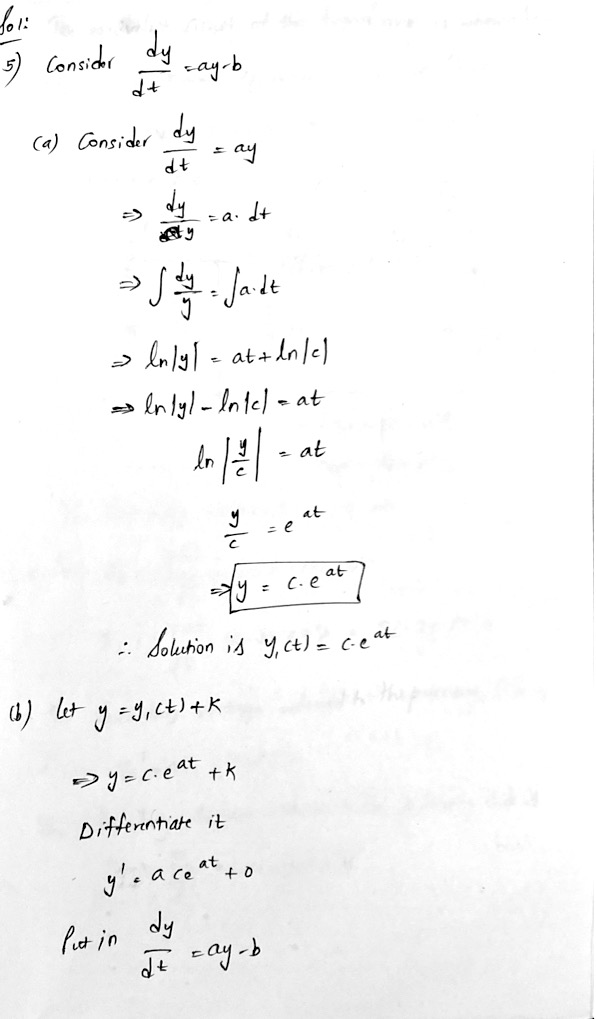 Sol:
5) Consider dy/dt = ay-b
(a) Consider dy/dt = ay
⇒ dy/y = a. dt
⇒ ∫ dy/y = ∫a.dt
⇒ ln|y| = at + ln|c|
⇒ ln|y| - ln|c| = at
ln |y/c| = at
y/c = e^at
⇒ y = c.e^at
∴ Solution is y₁(t) = c.e^at
(b) Let y = y₁(t) + k
⇒ y = c.e^at + k
Differentiate it
y' = a ce^at + 0
Put in dy/dt = ay-b